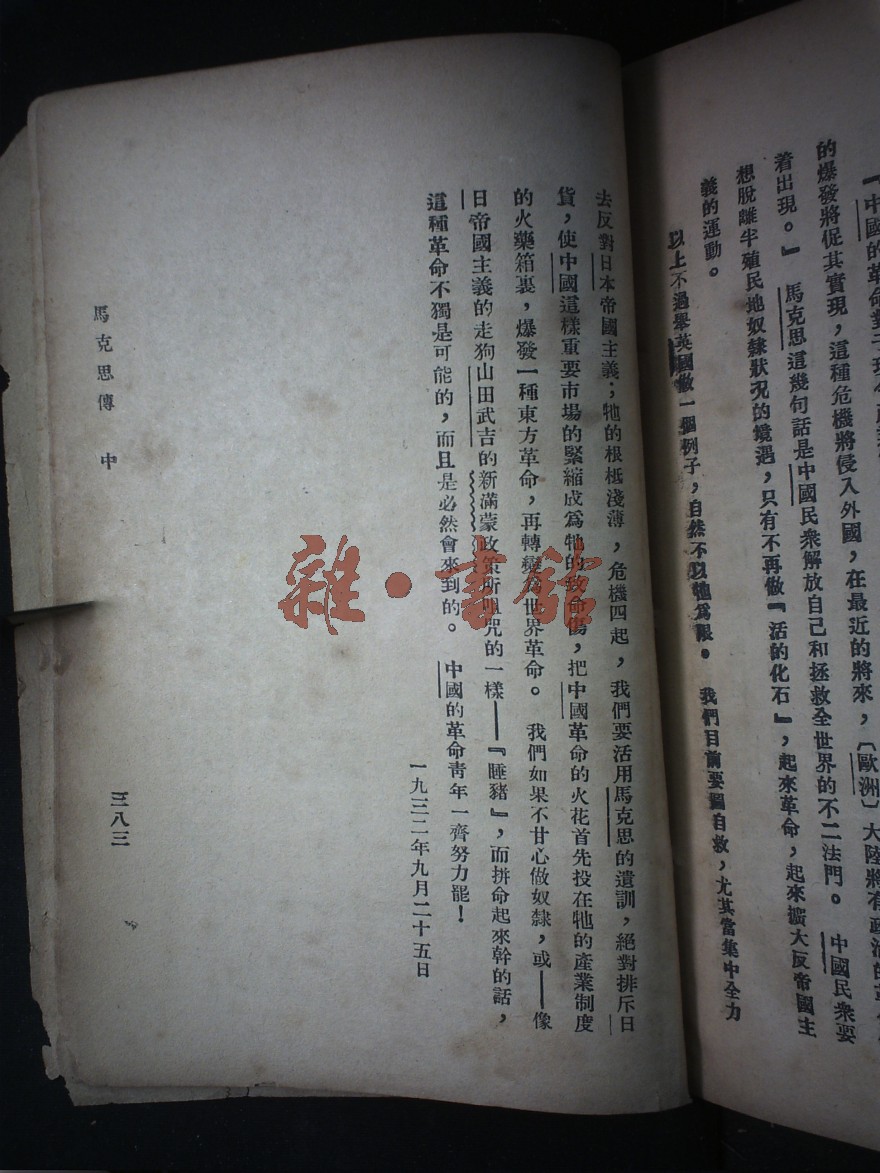 『中國的革命對于現今產業
的爆發將促其實現，這種危機將侵入外國，在最近的將來，〔歐洲〕大陸將有政治的革
着出現。』　馬克思這幾句話是中國民衆解放自己和拯救全世界的不二法門。　中國民衆要
想脫離半殖民地奴隸狀況的境遇，只有不再做『活的化石』，起來革命，起來擴大反帝國主
義的運動。
以上不過舉英國做一個例子，自然不以牠爲限。　我們目前要圖自救，尤其當集中全力
去反對日本帝國主義；牠的根柢淺薄，危機四起，我們要活用馬克思的遺訓，絕對排斥日
貨，使中國這樣重要市場的緊縮成爲牠的致命傷，把中國革命的火花首先投在牠的產業制度
的火藥箱裏，爆發一種東方革命，再轉變爲世界革命。　我們如果不甘心做奴隸，或——像
日帝國主義的走狗山田武吉的新滿蒙政策所咀咒的一樣——『睡豬』，而拼命起來幹的話，
這種革命不獨是可能的，而且是必然會來到的。　中國的革命靑年一齊努力罷！
一九三二年九月二十五日
馬克思傳　中
三八三
雜·書館